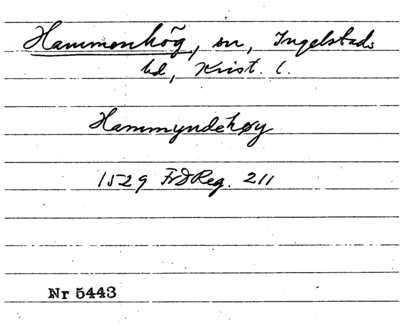 Hammenhög, sn, Ingelstads
hd, Krist. l.
Hammyndehøy
1529 FrdReg. 211
Nr 5443